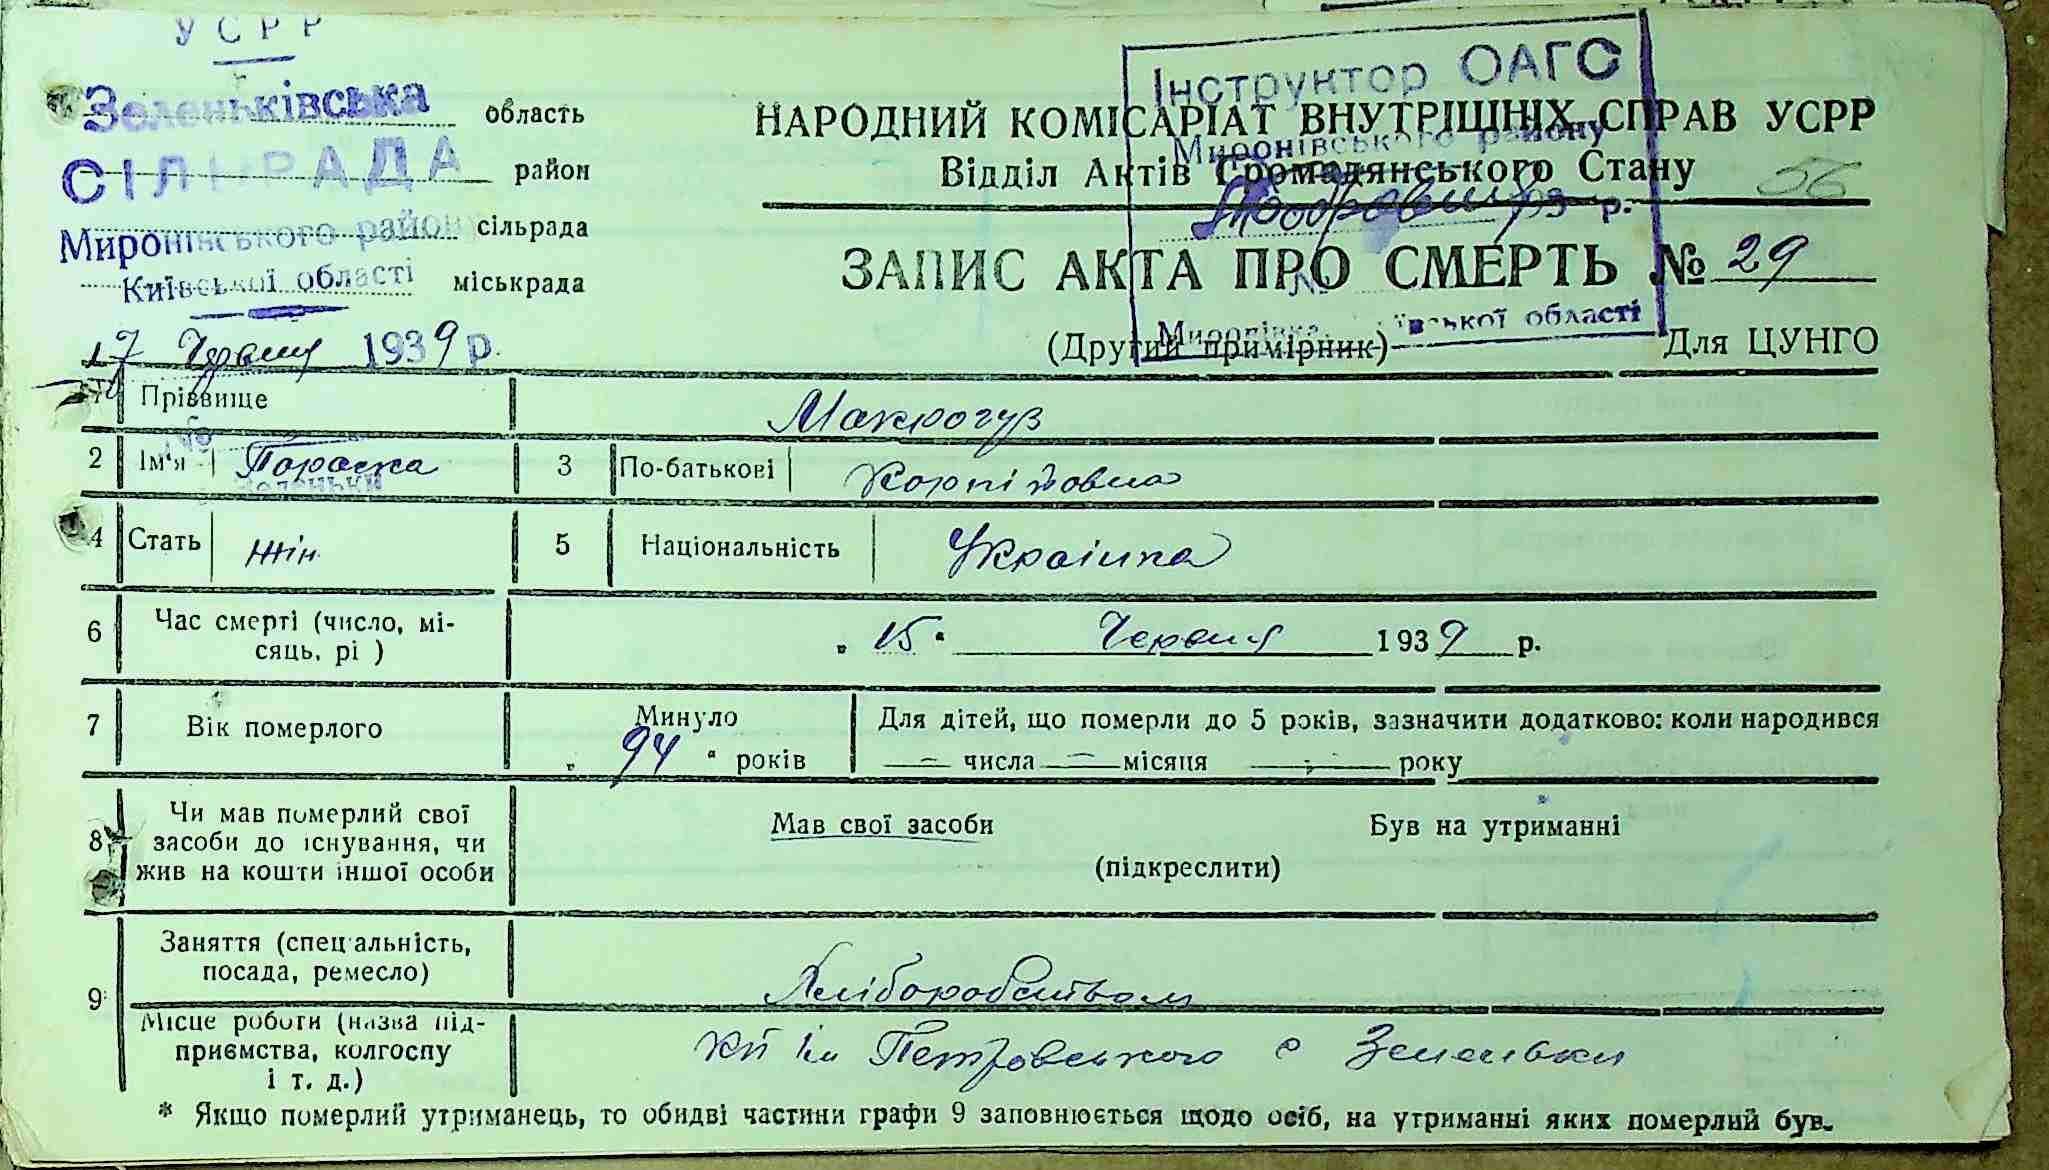 УСРР
Зеленьківська область
СІЛЬРАДА район
Миронівського району сільрада
Київської області міськрада
17 Червня 1939 р.
Інструктор ОАГС
Миронівського району
193 р.
№
Миронівка, Київської області
НАРОДНИЙ КОМІСАРІАТ ВНУТРІШНІХ СПРАВ УСРР
Відділ Актів Громадянського Стану
56
ЗАПИС АКТА ПРО СМЕРТЬ № 29
(Другий примірник) Для ЦУНГО
1 Прізвище Макрогуз
2 Ім'я Параска 3 По-батькові Карпівовна
Зеленьки
4 Стать жін 5 Національність Українка
6 Час смерті (число, мі-
сяць, рі ) „ 15 “ Червня 1939 р.
7 Вік померлого Минуло „ 94 “ років
Для дітей, що померли до 5 років, зазначити додатково: коли народився
— числа — місяця — року
8 Чи мав померлий свої
засоби до існування, чи
жив на кошти іншої особи
Мав свої засоби Був на утриманні
(підкреслити)
9 Заняття (спеціальність,
посада, ремесло) Хліборобством
Місце роботи (назва під-
приємства, колгоспу
і т. д.) кп ім Петровського с Зеленьки
* Якщо померлий утриманець, то обидві частини графи 9 заповнюється щодо осіб, на утриманні яких померлий був.